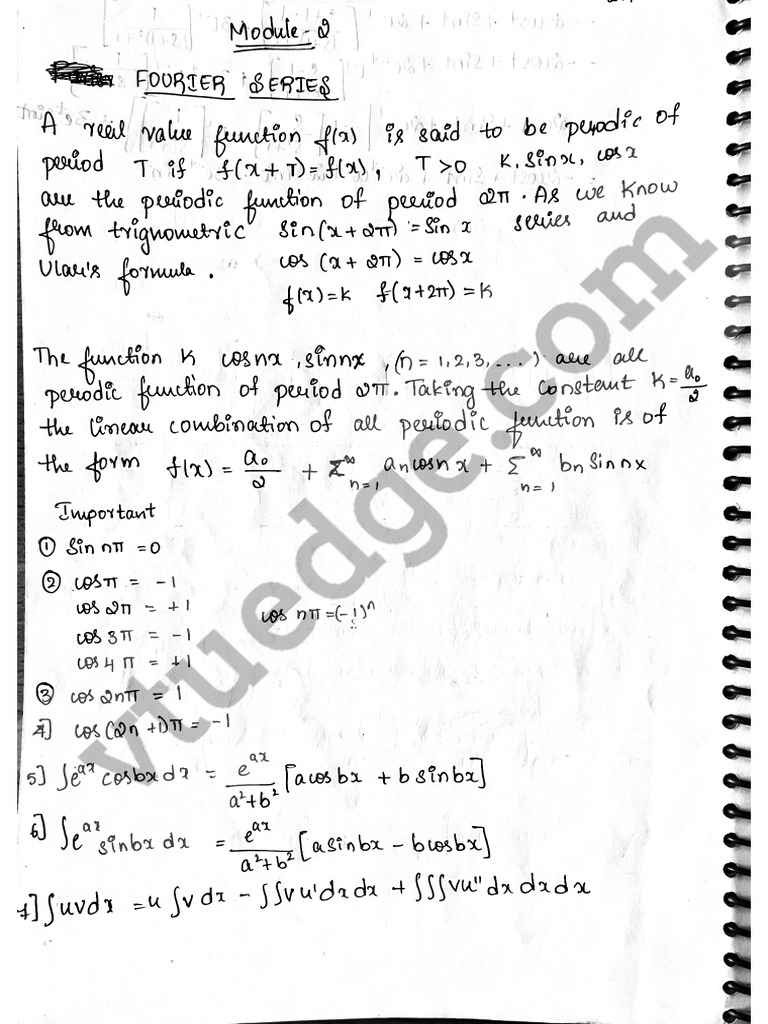 Module-2
FOURIER SERIES
A real value function f(x) is said to be perodic of
period T if f(x+T)=f(x), T>0 K, sinx, cosx
are the periodic function of period 2π. As we know
from trignometric sin(x+2π) = sin x series and
Ular's formula. cos (x+2π) = cosx
f(x)=K f(x+2π)=K
The function K cosnx, sinnx, (n = 1,2,3,...) are all
perodic function of period 2π. Taking the constant K = a₀/2
the linear combination of all periodic function is of
the form f(x) = a₀/2 + Σ^∞_{n=1} an cosn x + Σ^∞_{n=1} bn sin nx
Important
① sin nπ = 0
② cosπ = -1
cos 2π = +1 cos nπ = (-1)ⁿ
cos 3π = -1
cos 4π = +1
③ cos 2nπ = 1
4] cos(2n+1)π = -1
5] ∫e^{ax} cosbx dx = e^{ax}/(a²+b²) [a cos bx + b sinbx]
6] ∫e^{ax} sinbx dx = e^{ax}/(a²+b²) [a sinbx - b cosbx]
7] ∫uvdx = u ∫v dx - ∫∫v u' dx dx + ∫∫∫vu'' dx dx dx
vtuedge.com